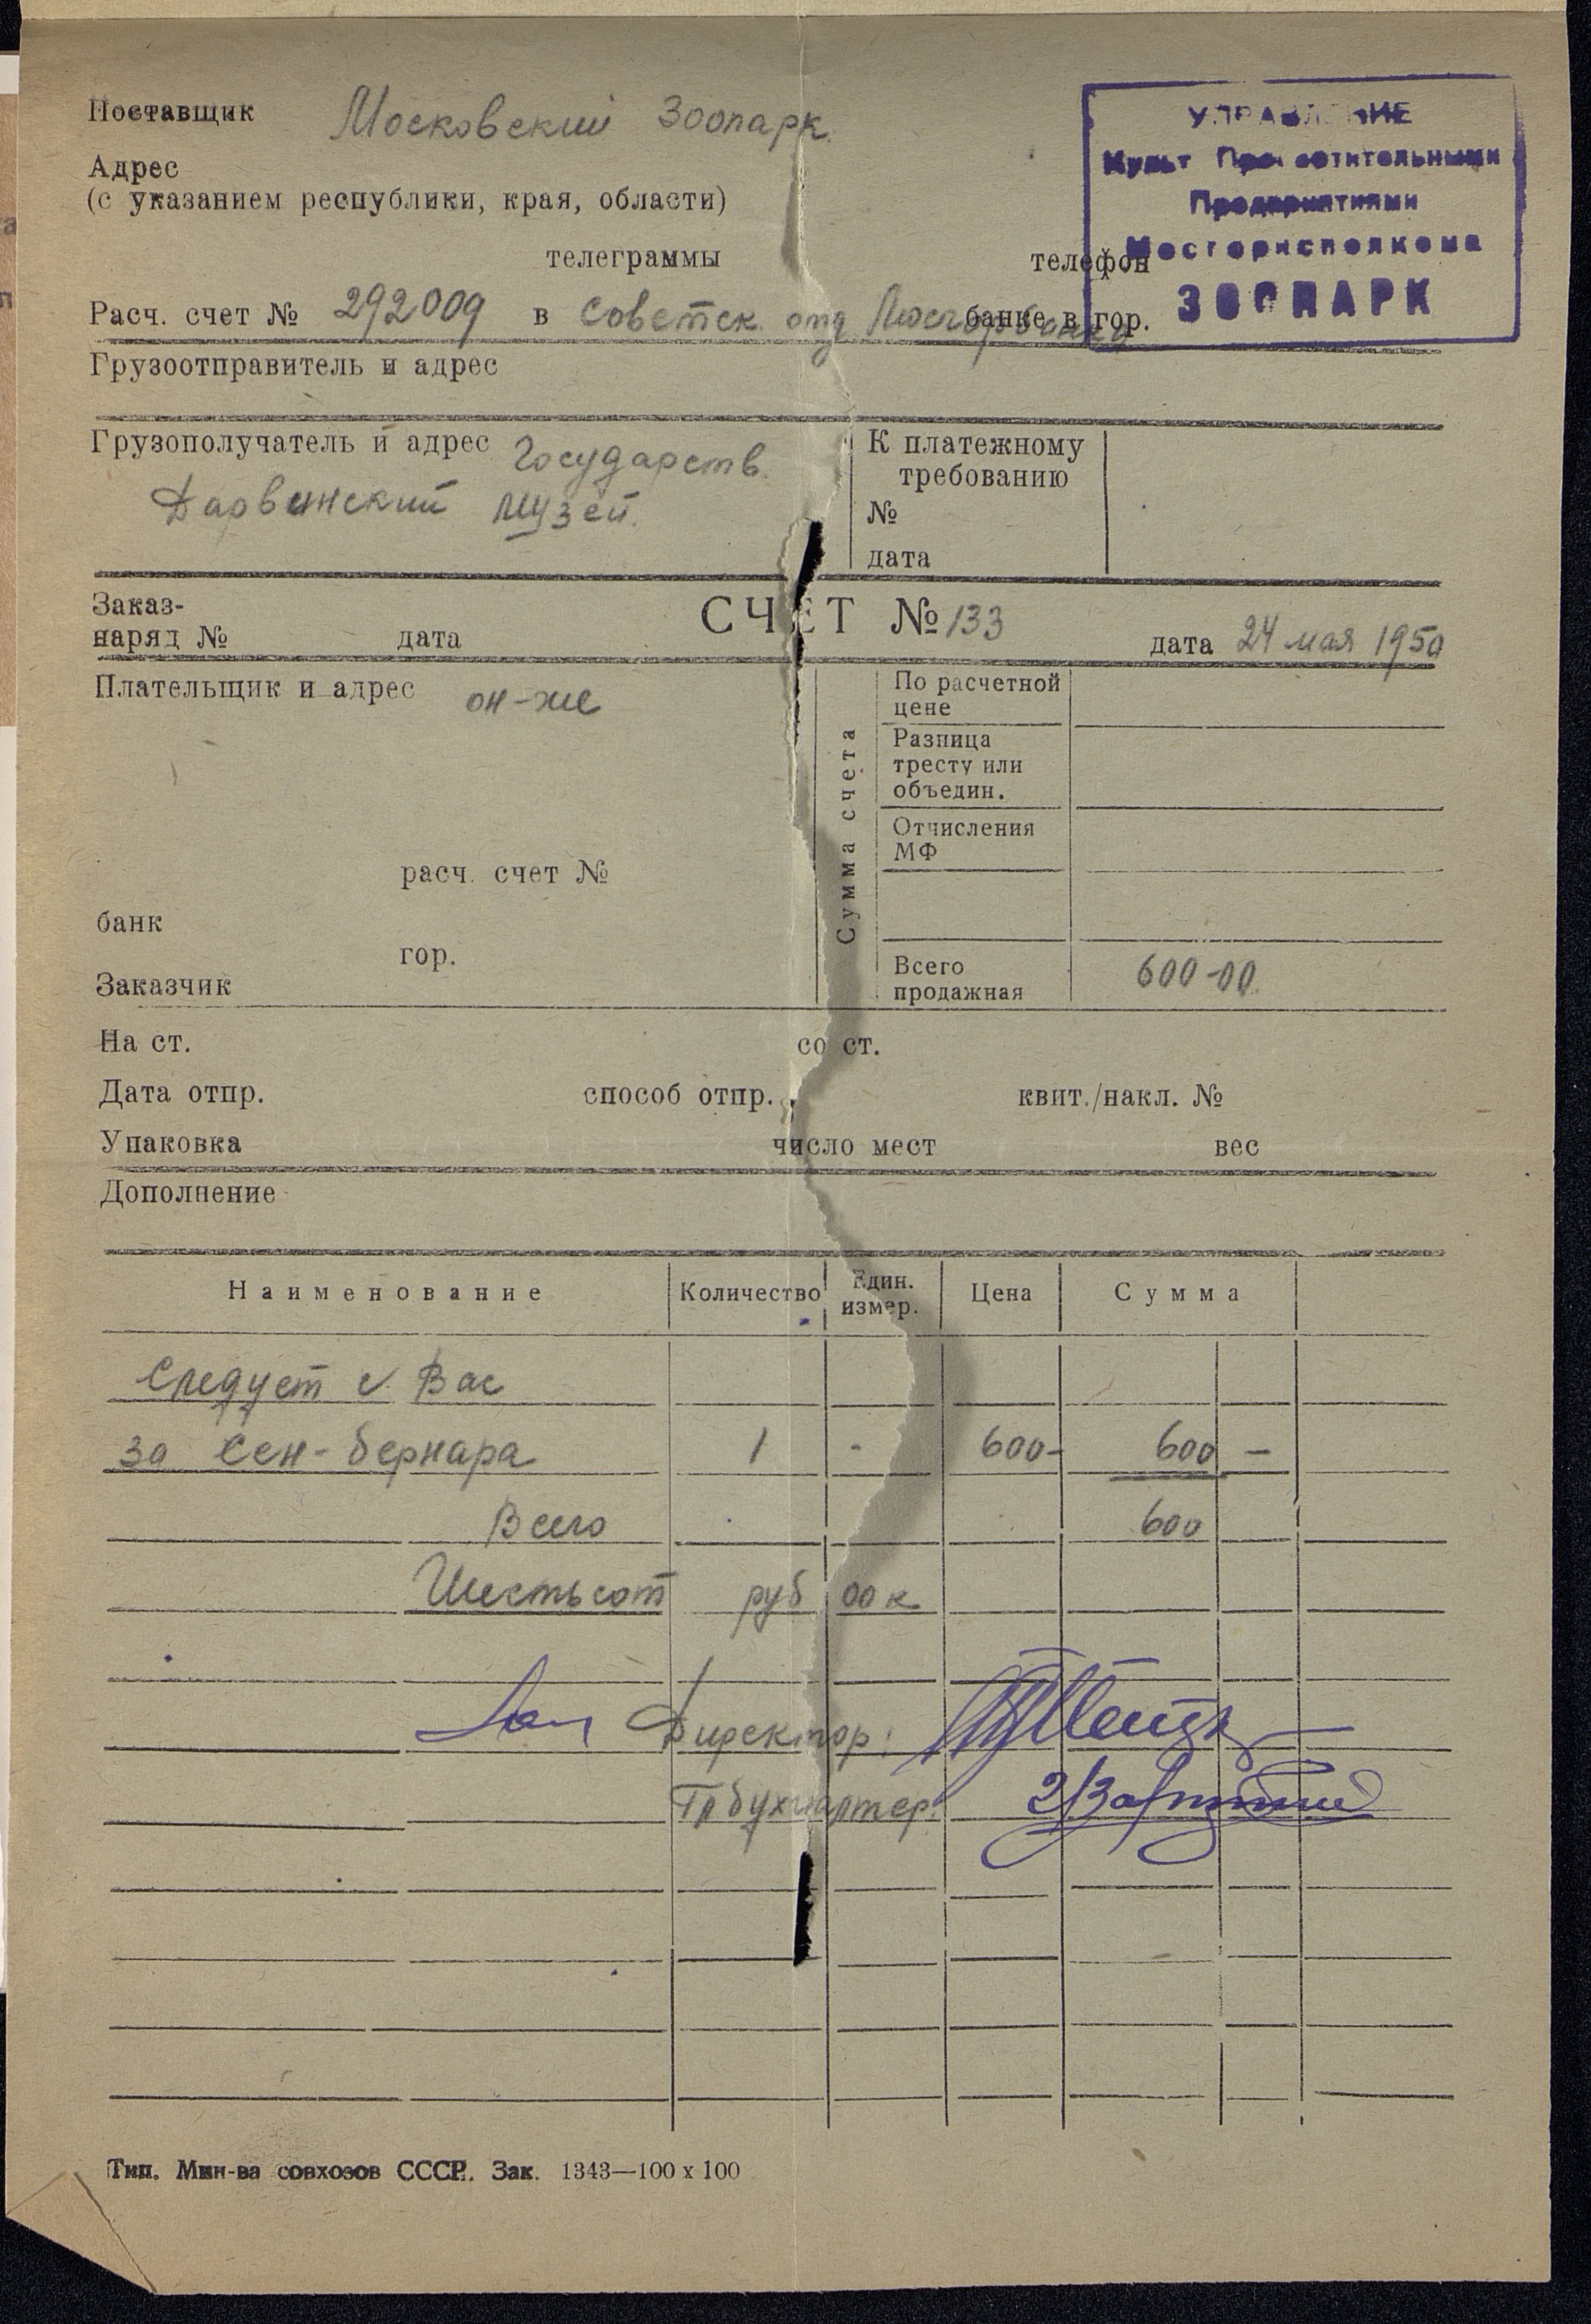 Поставщик Московский Зоопарк.
УПРАВЛЕНИЕ
Культ Просветительными
Предприятиями
Мосгорисполкома
ЗООПАРК
Адрес
(с указанием республики, края, области)
телеграммы телефон
Расч. счет № 292009 в Советск. отд Мосгорбанка банке в гор.
Грузоотправитель и адрес
Грузополучатель и адрес Государств.
Дарвинский музей.
К платежному
требованию
№
дата
Заказ-
наряд № дата
СЧЕТ № 133 дата 24 мая 1950
Плательщик и адрес он-же
расч. счет №
банк
гор.
Заказчик
Сумма счета
По расчетной
цене
Разница
тресту или
объедин.
Отчисления
МФ
Всего
продажная 600-00
На ст. со ст.
Дата отпр. способ отпр. квит./накл. №
Упаковка число мест вес
Дополнение
Наименование Количество Един. измер. Цена Сумма
Следует с Вас
за Сен-бернара 1 - 600- 600 -
Всего 600
Шестьсот руб 00 к
Директор:
Гл бухгалтер:
Тип. Мин-ва совхозов СССР. Зак. 1343—100 х 100